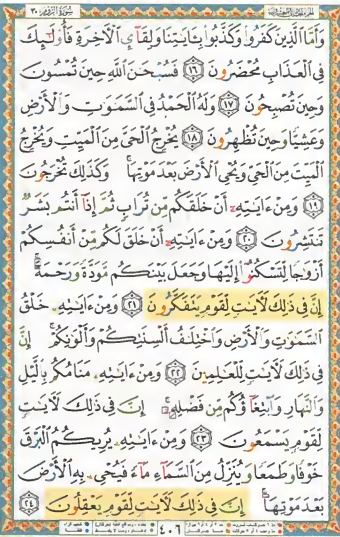 سورة الروم ٣٠
وَأَمَّا ٱلَّذِينَ كَفَرُوا۟ وَكَذَّبُوا۟ بِـَٔايَـٰتِنَا وَلِقَآئِ ٱلْـَٔاخِرَةِ فَأُو۟لَـٰٓئِكَ
فِى ٱلْعَذَابِ مُحْضَرُونَ ١٦ فَسُبْحَـٰنَ ٱللَّهِ حِينَ تُمْسُونَ
وَحِينَ تُصْبِحُونَ ١٧ وَلَهُ ٱلْحَمْدُ فِى ٱلسَّمَـٰوَٰتِ وَٱلْأَرْضِ
وَعَشِيًّا وَحِينَ تُظْهِرُونَ ١٨ يُخْرِجُ ٱلْحَىَّ مِنَ ٱلْمَيِّتِ وَيُخْرِجُ
ٱلْمَيِّتَ مِنَ ٱلْحَىِّ وَيُحْىِ ٱلْأَرْضَ بَعْدَ مَوْتِهَا ۚ وَكَذَٰلِكَ تُخْرَجُونَ
١٩ وَمِنْ ءَايَـٰتِهِۦٓ أَنْ خَلَقَكُم مِّن تُرَابٍ ثُمَّ إِذَآ أَنتُم بَشَرٌ
تَنتَشِرُونَ ٢٠ وَمِنْ ءَايَـٰتِهِۦٓ أَنْ خَلَقَ لَكُم مِّنْ أَنفُسِكُمْ
أَزْوَٰجًا لِّتَسْكُنُوٓا۟ إِلَيْهَا وَجَعَلَ بَيْنَكُم مَّوَدَّةً وَرَحْمَةً ۚ
إِنَّ فِى ذَٰلِكَ لَـَٔايَـٰتٍ لِّقَوْمٍ يَتَفَكَّرُونَ ٢١ وَمِنْ ءَايَـٰتِهِۦ خَلْقُ
ٱلسَّمَـٰوَٰتِ وَٱلْأَرْضِ وَٱخْتِلَـٰفُ أَلْسِنَتِكُمْ وَأَلْوَٰنِكُمْ ۚ إِنَّ
فِى ذَٰلِكَ لَـَٔايَـٰتٍ لِّلْعَـٰلِمِينَ ٢٢ وَمِنْ ءَايَـٰتِهِۦ مَنَامُكُم بِٱلَّيْلِ
وَٱلنَّهَارِ وَٱبْتِغَآؤُكُم مِّن فَضْلِهِۦٓ ۚ إِنَّ فِى ذَٰلِكَ لَـَٔايَـٰتٍ
لِّقَوْمٍ يَسْمَعُونَ ٢٣ وَمِنْ ءَايَـٰتِهِۦ يُرِيكُمُ ٱلْبَرْقَ
خَوْفًا وَطَمَعًا وَيُنَزِّلُ مِنَ ٱلسَّمَآءِ مَآءً فَيُحْىِۦ بِهِ ٱلْأَرْضَ
بَعْدَ مَوْتِهَآ ۚ إِنَّ فِى ذَٰلِكَ لَـَٔايَـٰتٍ لِّقَوْمٍ يَعْقِلُونَ ٢٤
٤٠٦